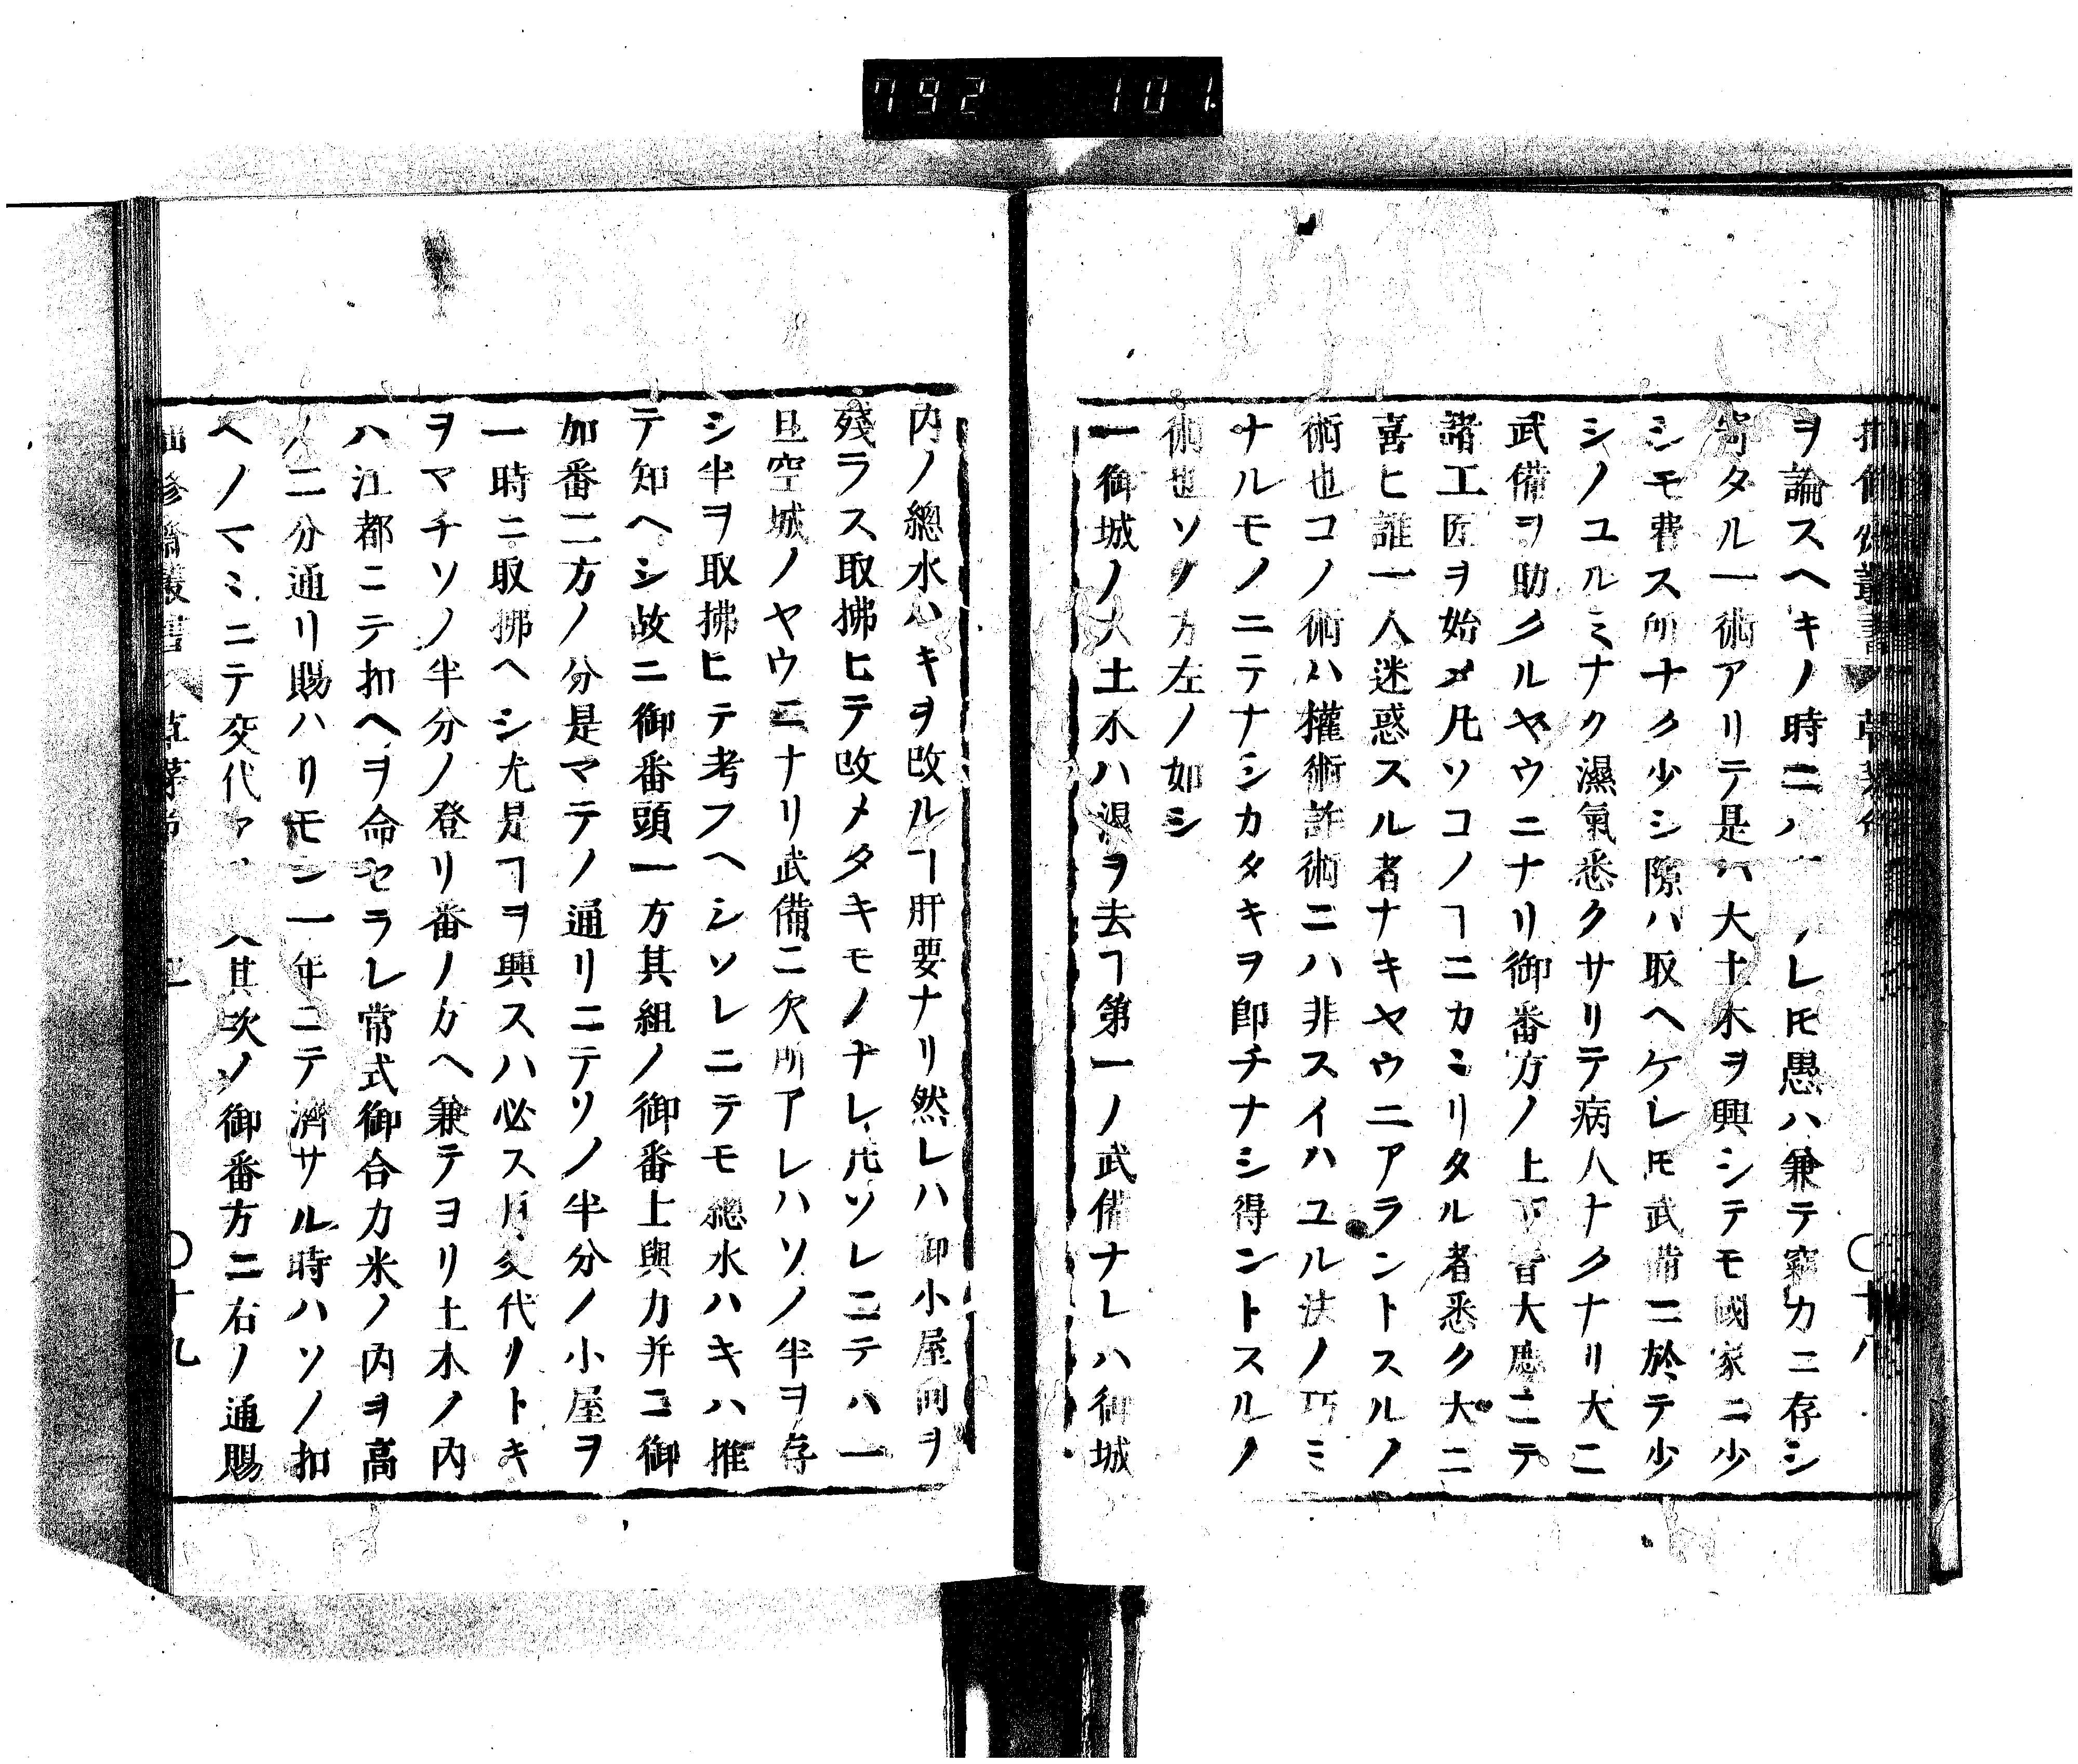 792 101
ヲ論スヘキノ時ニハ ノレ𪜈愚ハ兼テ竊カニ存シ
寄タル一術アリテ是ハ大土木ヲ興シテモ國家ニ少
シモ費ス所ナク少シ隙ハ取ヘケレ𪜈武備ニ於テ少
シノユルミナク濕氣悉クサリテ病人ナクナリ大ニ
武備ヲ助クルヤウニナリ御番方ノ上下皆大慶ニテ
諸工匠ヲ始メ凡ソコノヿニカミリタル者悉ク大ニ
喜ヒ誰一人迷惑スル者ナキヤウニアラントスルノ
術也コノ術ハ權術詐術ニハ非スイハユル法ノ巧ミ
ナルモノニテナシカタキヲ卽チナシ得ントスルノ
術也ソノ方左ノ如シ
一御城ノ大土木ハ濕ヲ去ヿ第一ノ武備ナレハ御城
内ノ總水ハキヲ改ルヿ肝要ナリ然レハ御小屋向ヲ
殘ラス取拂ヒテ改メタキモノナレ𪜈ソレニテハ一
旦空城ノヤウニナリ武備ニ欠所アレハソノ半ヲ存
シ半ヲ取拂ヒテ考フヘシソレニテモ總水ハキハ推
テ知ヘシ故ニ御番頭一方其組ノ御番上與力并ニ御
加番二方ノ分是マテノ通リニテソノ半分ノ小屋ヲ
一時ニ取拂ヘシ尤是ヿヲ興スハ必ス月交代ノトキ
ヲマチソノ半分ノ登リ番ノ方ヘ兼テヨリ土木ノ内
ハ江都ニテ扣ヘヲ命セラレ常式御合力米ノ内ヲ高
ノ二分通リ賜ハリモシ一年ニテ濟サル時ハソノ扣
ヘノマミニテ交代 其次ノ御番方ニ右ノ通賜
草茅 〇十九